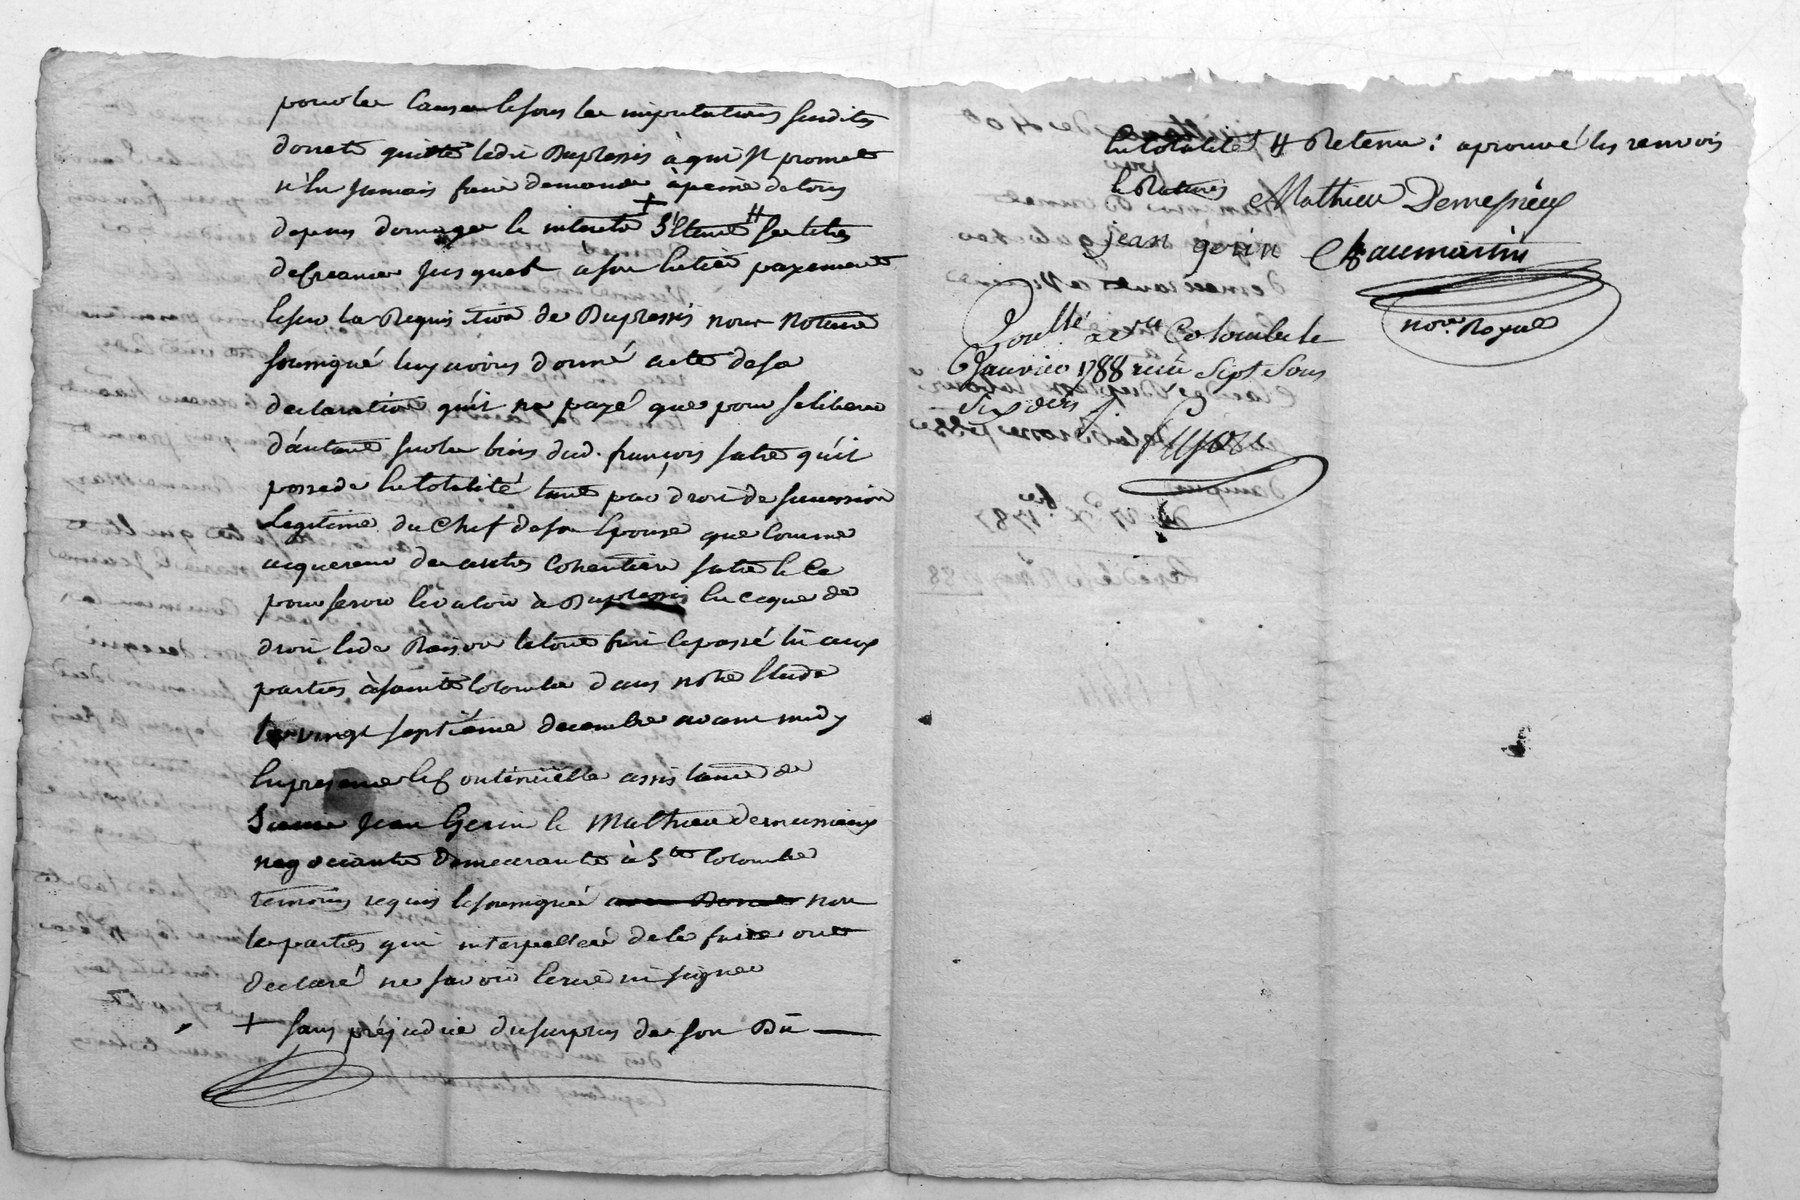 pour les causes et sous les imputations susdites
dont quitte ledit Duplessis à qui Il promet
n'En Jamais faire demande à peine de tous
depens domages et interets + S'étant # ses titres
de Creance Jusques a son Entier payement
et sur la Requisition de Duplessis nous Notaire
soussigné luy avons donné acte de sa
declaration qu'il ne paye que pour se liberer
d'autant sur les biens dud. françois satre qu'il
possede En totalité tant par droit de succession
Legitime du Chef de son Epouse que comme
acquereur des autres Coheritiers satre et Ce
pour servir et valoir à Duplessis En ce que de
droit et de Raison le tout fait et passé lû aux
parties à sainte Colombe dans notre Etude
le vingt septième decembre avant midy
En presence et
Sieurs Jean Gerin et Mathieu demeusieux
negociants demeurants à Ste Colombe
temoins requis et soussignés non
les parties qui interpellées de le faire ont
declaré ne savoir Ecrire ni signer
+ sans préjudice du surplus de son Dû
En totalité # Retenu : aprouvé les renvois
et Ratures Mathieu Demesieux
jean gerin Chaumartin
nore. Royal
Conllé. a Ste Colombe le
6 Janvier 1788 reçu Sept Sous
Six den.s